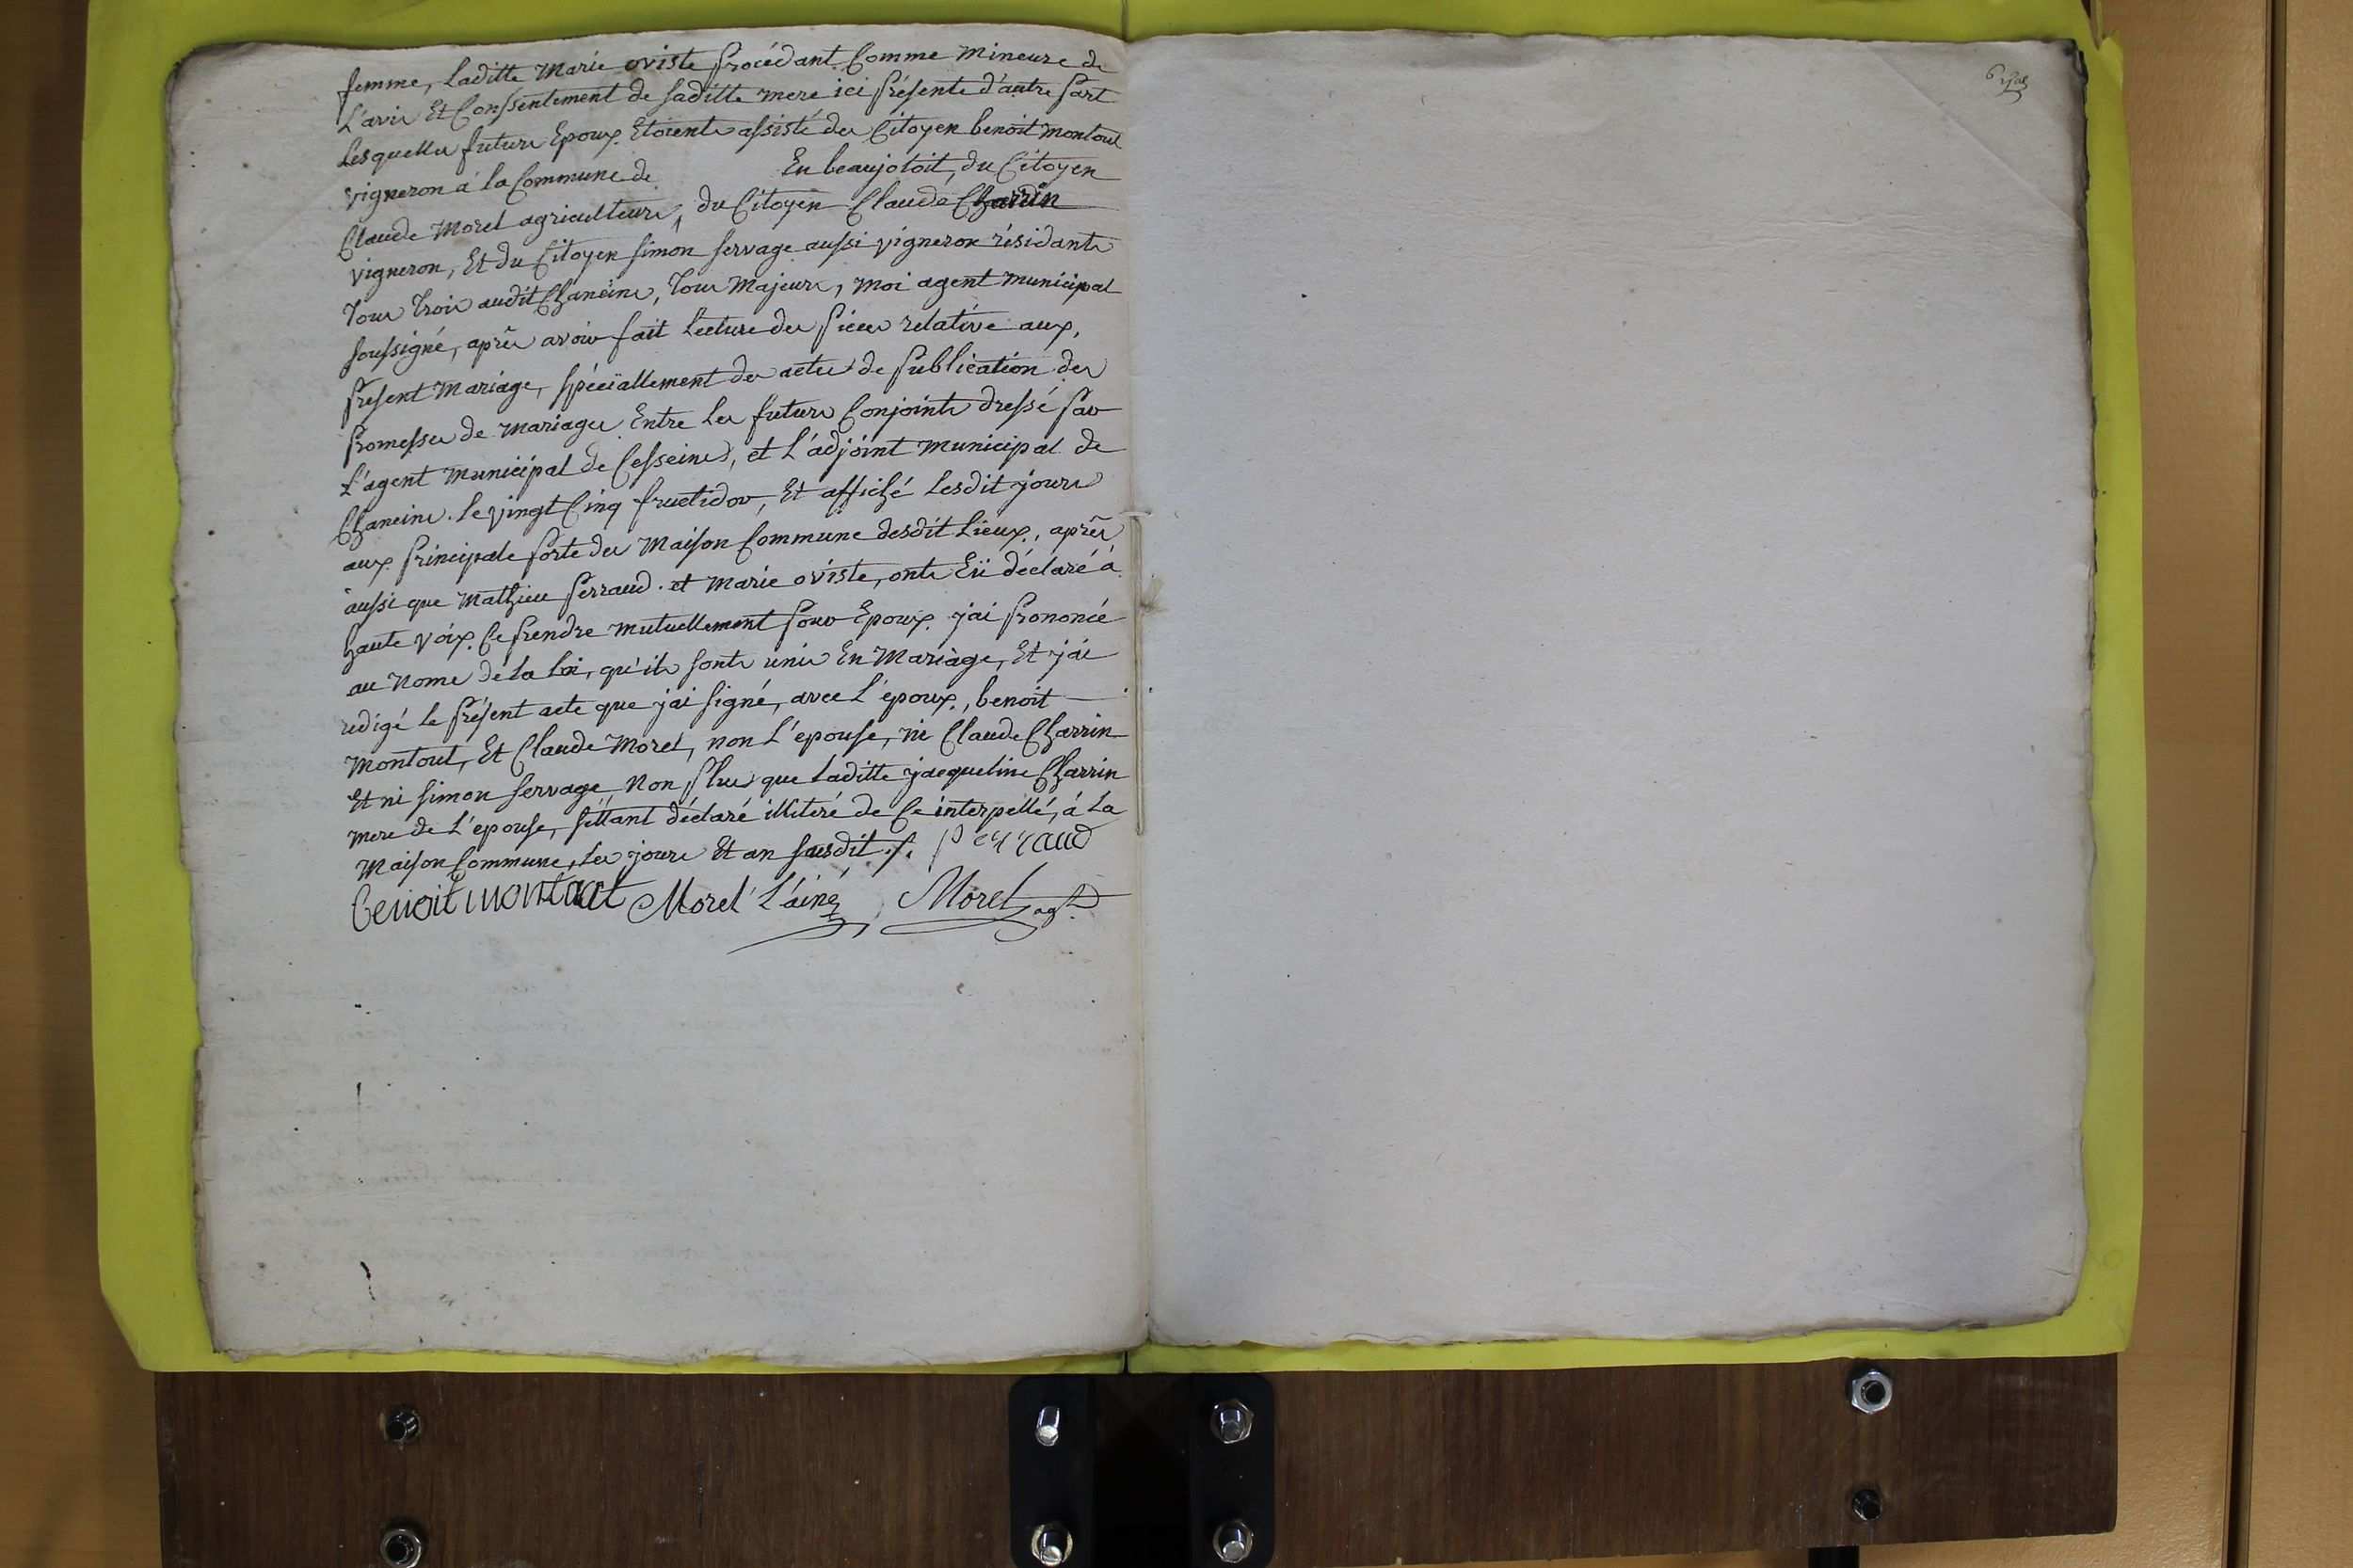 femme, Laditte Marie oviste procédant Comme Mineure de
L'avis Et Conssentement de saditte mere ici présente d'autre part
Lesquelles futurs Epoux Etoients assisté des Citoyen benoit montout
vigneron à la Commune de En beaujoloit, du Citoyen
Claude Morel agriculteurs, du Citoyen Claude Charrin
vigneron, Et du Citoyen simon servage aussi vigneron résidants
Tous Trois audit Chaneins, Tous Majeurs, moi agent municipal
soussigné, après avoir fait Lecture des pieces relative aux
présent Mariage, spéciallement des actes de publication des
promesses de mariages Entre Les futurs Conjoints dressé par
L'agent municipal de Cesseins, et L'adjoint municipal de
Chaneins. Le vingt Cinq fructidor, Et affiché Lesdit jours
aux principale porte des Maison Commune desdit Lieux, après
aussi que Mathieu perraud. et Marie oviste, onts Eü déclaré à
haute voix Ce prendre mutuellement pour Epoux jai prononcé
au nome de la Loi, qu'ils sonts unis En Mariage, Et j'ai
redigé le présent acte que j'ai signé, avec L'epoux, benoit
montout, Et Claude Morel, non L'epouse, ni Claude Charrin
Et ni simon servage non plus que Laditte jacqueline Charrin
mere de L'epouse, s'ettant déclaré illiteré de Ce interpellé, à La
Maison Commune, Les jours Et an susdit ./. perraud
benoit montout Morel L'ainé Morel agt.